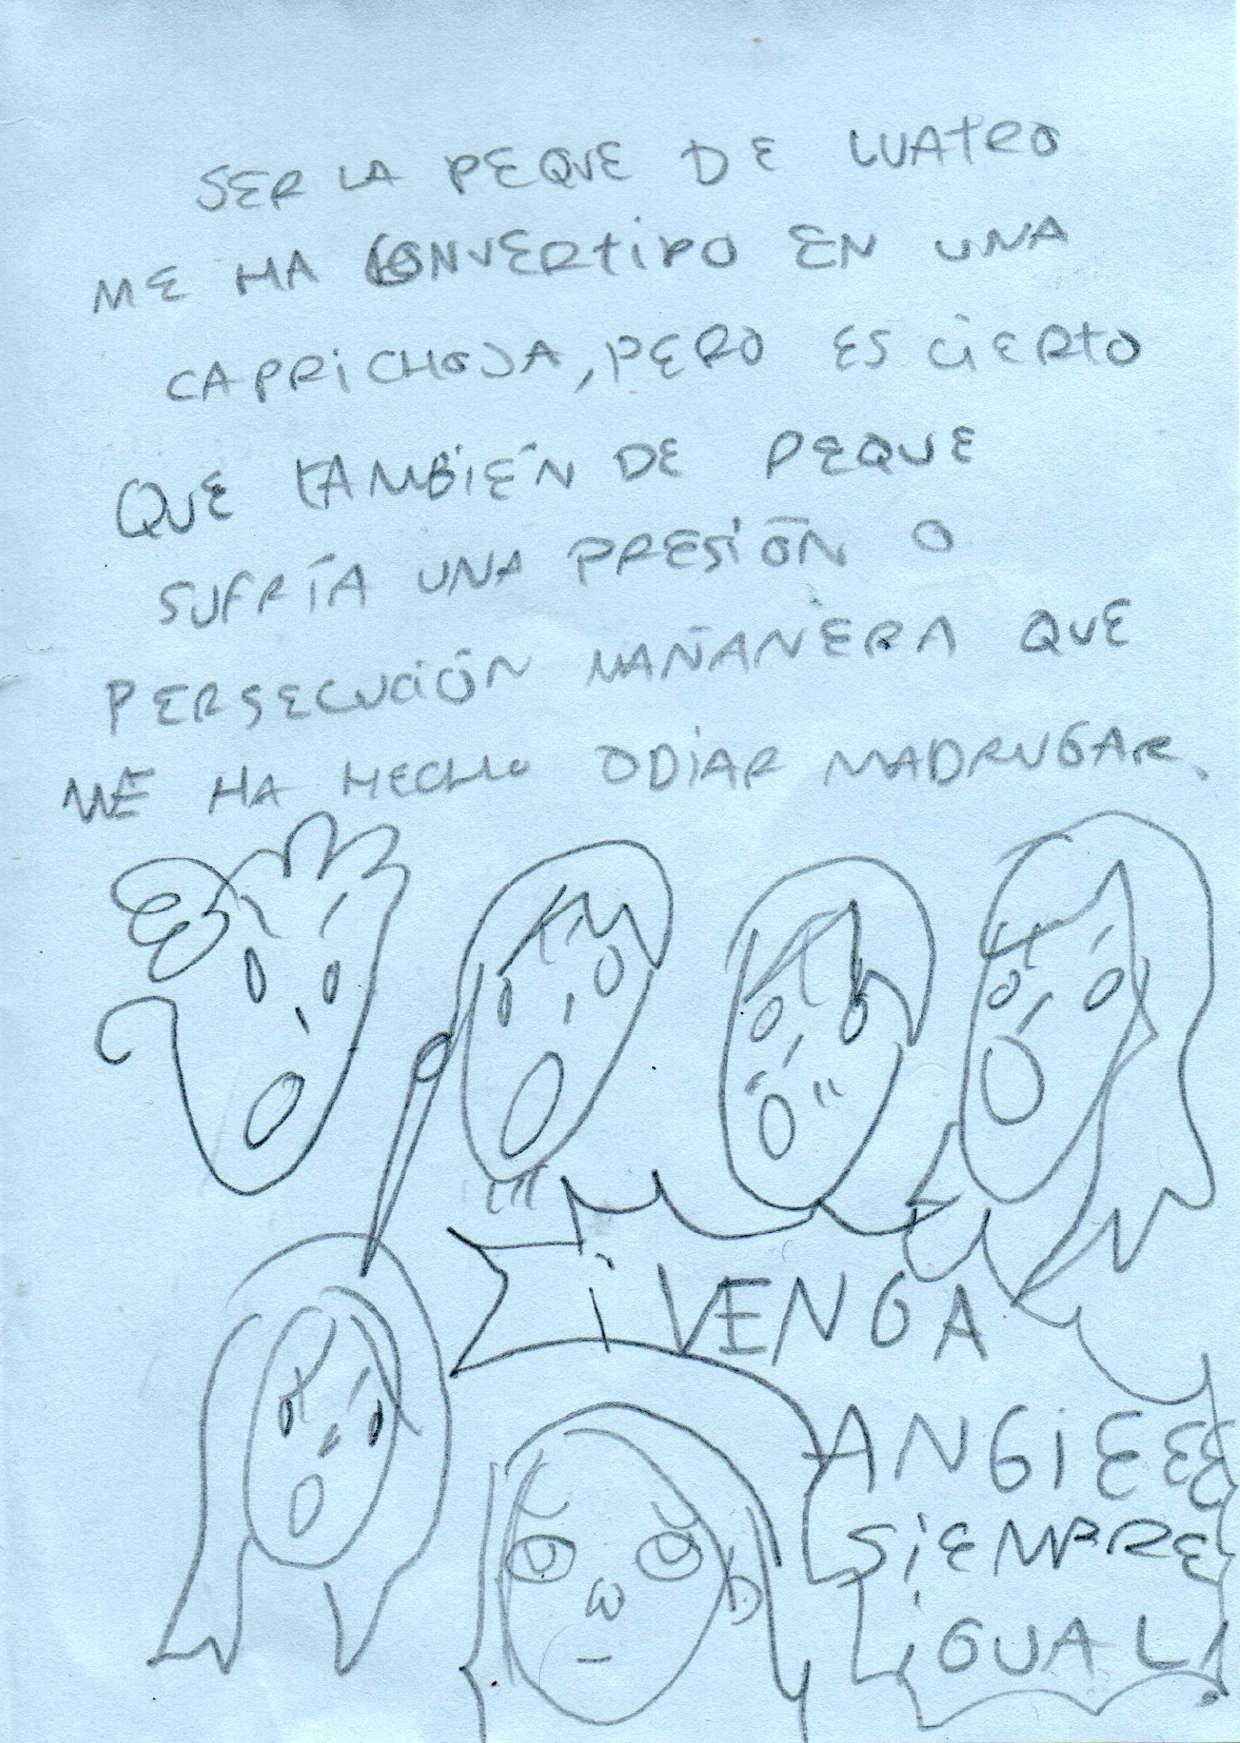 SER LA PEQUE DE CUATRO
ME HA CONVERTIDO EN UNA
CAPRICHOSA, PERO ES CIERTO
QUE TAMBIÉN DE PEQUE
SUFRÍA UNA PRESIÓN O
PERSECUCIÓN MAÑANERA QUE
ME HA HECHO ODIAR MADRUGAR.
¡VENGA
ANGIEEE
SIEMPRE
IGUAL!